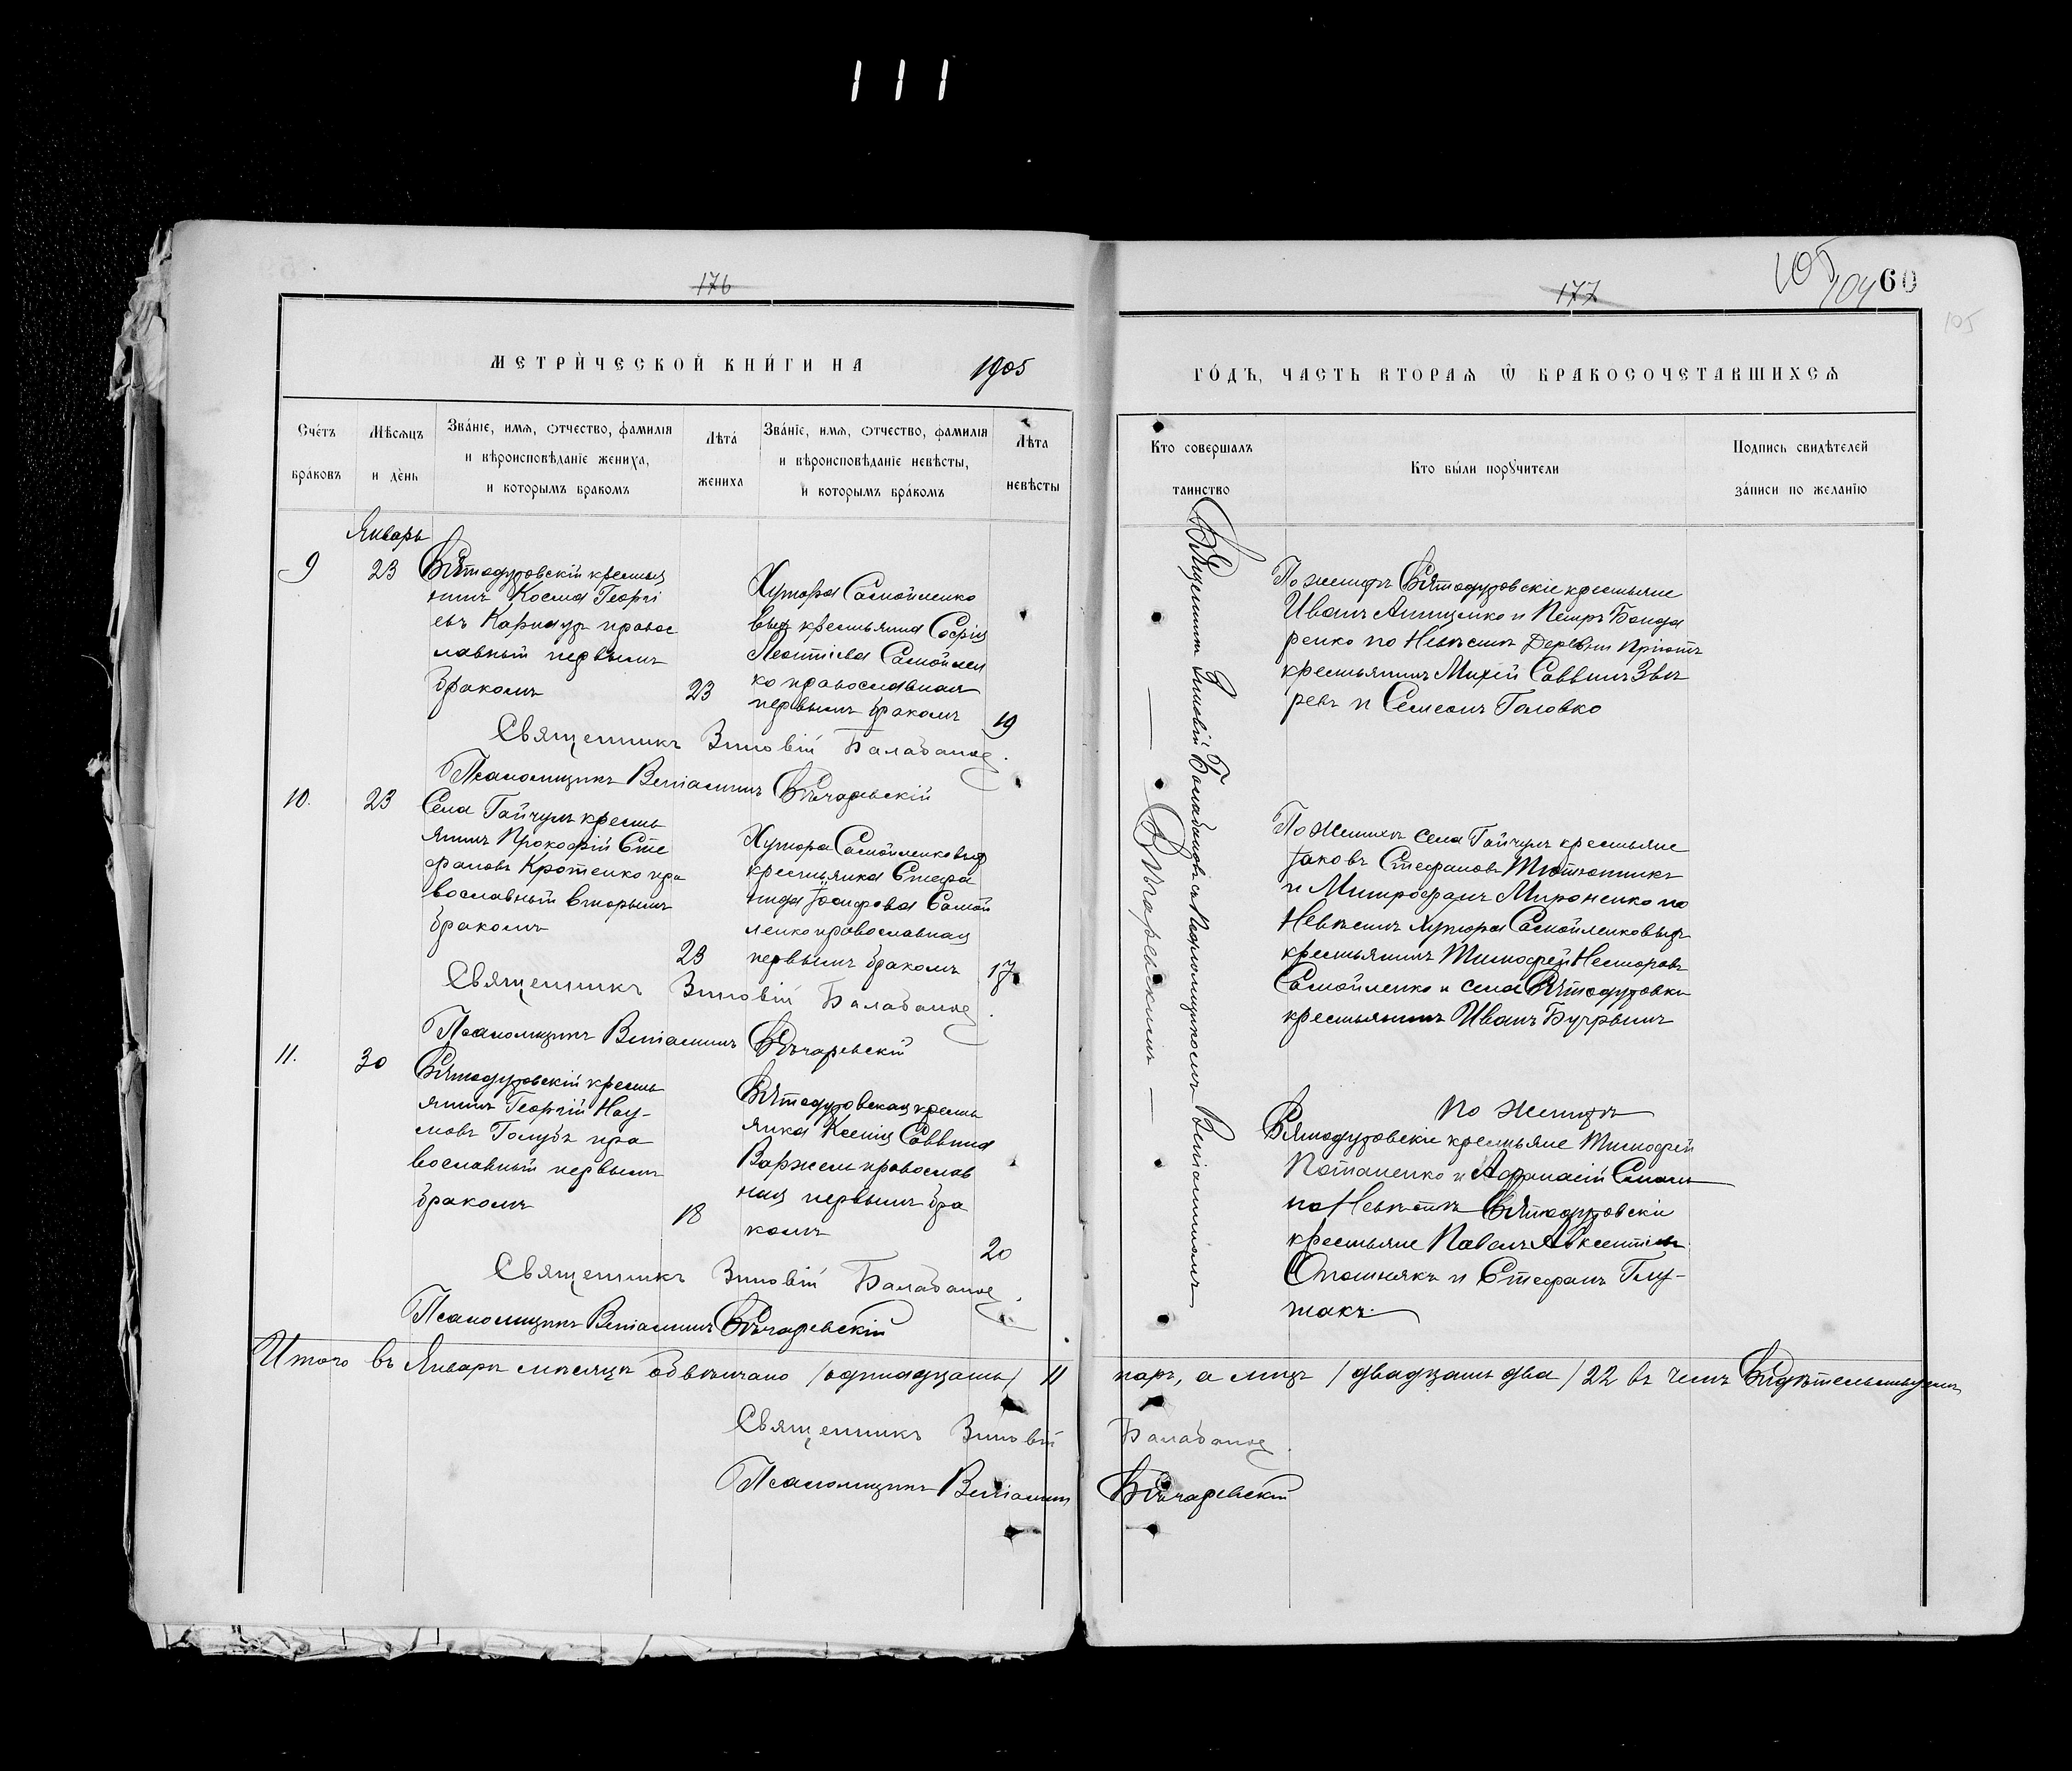 111
176
МЕТРИЧЕСКОЙ КНИГИ НА 1905
Счетъ браковъ
Мѣсяцъ и день
Званіе, имя, отчество, фамилія и вѣроисповѣданіе жениха, и которымъ бракомъ
Лѣта жениха
Званіе, имя, отчество, фамилія и вѣроисповѣданіе невѣсты, и которымъ бракомъ
Лѣта невѣсты
Январь
9
23
Святодуховскій крестья
нинъ Косма Георгі
евъ Карнаухъ правос
лавный первымъ
бракомъ
23
Хутора Самойленко
выхъ крестьянка Софія
Леонтіева Самойлен
ко православная
первымъ бракомъ
19
Священникъ Зиновій Балабановъ.
Псаломщикъ Веніаминъ
10.
23
Села Гайчулъ кресть
янинъ Прокофій Сте
фановъ Кротенко пра
вославный вторымъ
бракомъ
23
Хутора Самойленковыхъ
крестьянка Стефа
нида Іосифова Самой
ленко православная
первымъ бракомъ
17
Священникъ Зиновій Балабановъ.
Псаломщикъ Веніаминъ
11.
30
Святодуховскій кресть
янинъ Георгій Нау-
мовъ Голубъ пра
вославный первымъ
бракомъ
18
Святодуховская кресть
янка Ксенія Саввина
Варжель православ
ная первымъ бра
комъ
20
Священникъ Зиновій Балабановъ.
Псаломщикъ Веніаминъ
177
105
104
60
105
ГОДЪ, ЧАСТЬ ВТОРАЯ Ѿ БРАКОСОЧЕТАВШИХСЯ
Кто совершалъ таинство
Кто были поручители
Подпись свидѣтелей записи по желанію
Священникъ Зиновій Балабановъ съ Псаломщикомъ Веніаминомъ
По женихѣ Святодуховскіе крестьяне
Иванъ Анищенко и Петръ Бонда
ренко по Невѣстѣ Деревни Пріютъ
крестьянинъ Михей Саввинъ Звѣ
ревъ и Семеонъ Головко
По Женихѣ села Гайчулъ крестьяне
Іаковъ Стефановъ Тютюнникъ
и Митрофанъ Мироненко по
Невѣстѣ хутора Самойленковыхъ
крестьянинъ Тимофей Несторовъ
Самойленко и села Святодуховки
крестьянинъ Иванъ
По женихѣ
Святодуховскіе крестьяне Тимофей
Потапенко и Афанасій
по Невѣстѣ Святодуховскіе
крестьяне Павелъ Авксентіевъ
Опошнякъ и Стефанъ Глу-
шакъ.
Итого въ Январѣ мѣсяцѣ обвѣнчано /одинадцать/ 11 паръ, а лицъ /двадцать два/ 22 въ чемъ Свидѣтельствуемъ
Священникъ Зиновій Балабановъ.
Псаломщикъ Веніаминъ